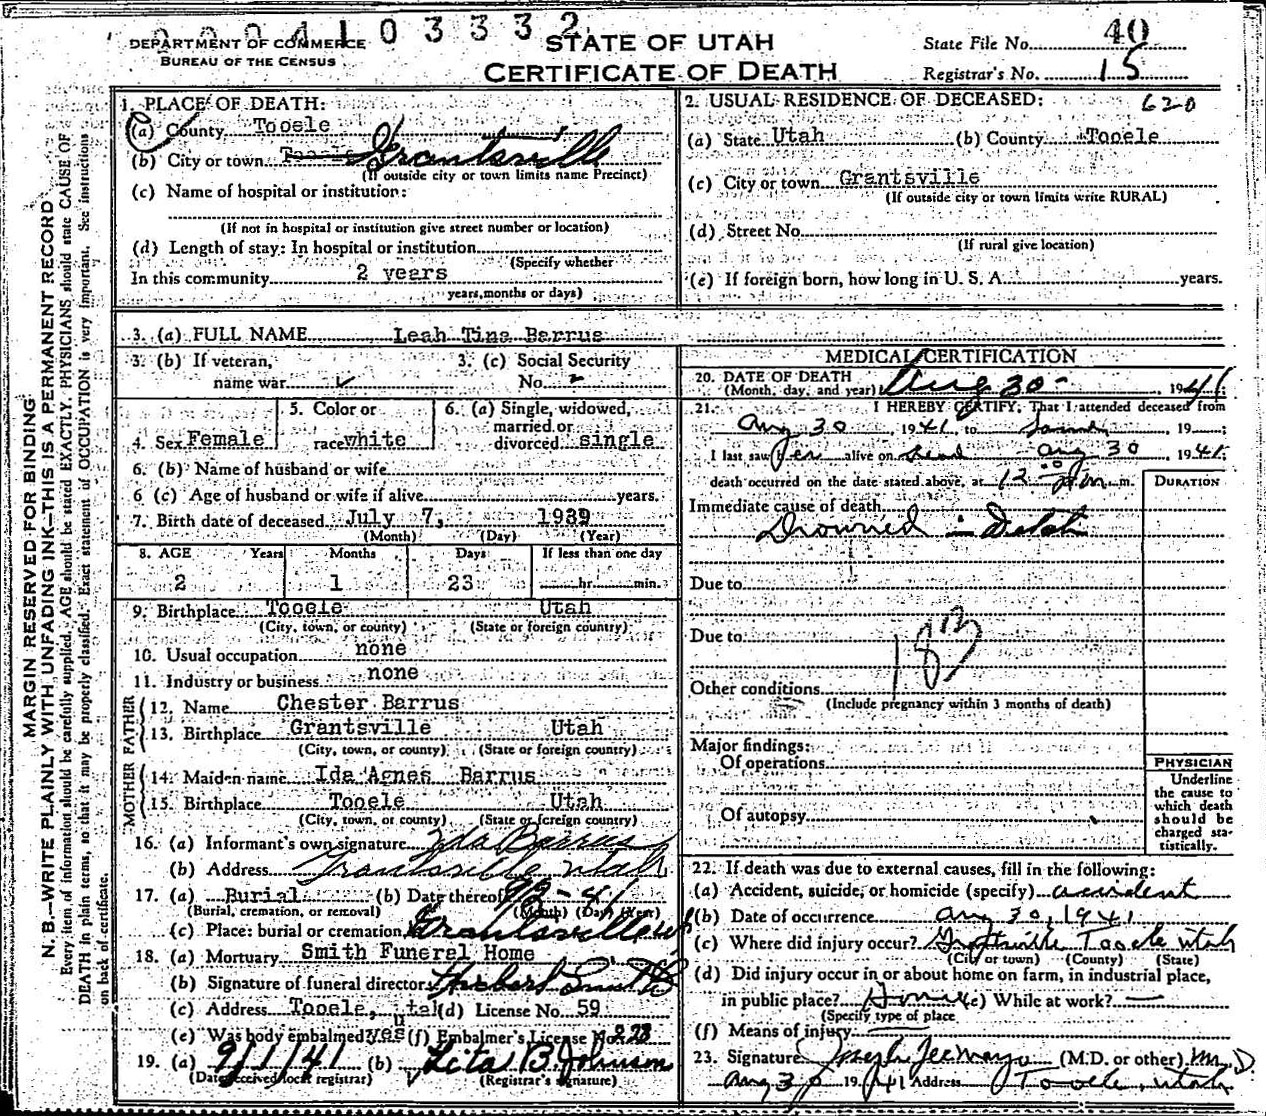 0004103332
DEPARTMENT OF COMMERCE
BUREAU OF THE CENSUS
STATE OF UTAH
CERTIFICATE OF DEATH
State File No. 40
Registrar's No. 15
MARGIN RESERVED FOR BINDING
N. B.—WRITE PLAINLY WITH UNFADING INK—THIS IS A PERMANENT RECORD
Every item of information should be carefully supplied. AGE should be stated EXACTLY. PHYSICIANS should state CAUSE OF
DEATH in plain terms, so that it may be properly classified. Exact statement of OCCUPATION is very important. See instructions
on back of certificate.
1. PLACE OF DEATH:
(a) County Tooele
(b) City or town Tooele Grantsville
(If outside city or town limits name Precinct)
(c) Name of hospital or institution:
(If not in hospital or institution give street number or location)
(d) Length of stay: In hospital or institution
(Specify whether
In this community 2 years
years, months or days)
2. USUAL RESIDENCE OF DECEASED: 620
(a) State Utah (b) County Tooele
(c) City or town Grantsville
(If outside city or town limits write RURAL)
(d) Street No.
(If rural give location)
(e) If foreign born, how long in U. S. A. years.
3. (a) FULL NAME Leah Tina Barrus
3. (b) If veteran, name war
3. (c) Social Security No.
4. Sex Female
5. Color or race white
6. (a) Single, widowed, married or divorced single
6. (b) Name of husband or wife
6 (c) Age of husband or wife if alive years.
7. Birth date of deceased July 7, 1939
(Month) (Day) (Year)
8. AGE Years Months Days If less than one day
2 1 23 hr. min.
9. Birthplace Tooele Utah
(City, town, or county) (State or foreign country)
10. Usual occupation none
11. Industry or business none
FATHER
12. Name Chester Barrus
13. Birthplace Grantsville Utah
(City, town, or county) (State or foreign country)
MOTHER
14. Maiden name Ida Agnes Barrus
15. Birthplace Tooele Utah
(City, town, or county) (State or foreign country)
16. (a) Informant's own signature Ida Barrus
(b) Address Grantsville Utah
17. (a) Burial (b) Date thereof 9/2-41
(Burial, cremation, or removal) (Month) (Day) (Year)
(c) Place: burial or cremation Grantsville Ut
18. (a) Mortuary Smith Funeral Home
(b) Signature of funeral director Herbert Smith
(c) Address Tooele, Utah (d) License No. 59
(e) Was body embalmed yes (f) Embalmer's License No. 228
19. (a) 9/1/41 (b) Lita B. Johnson
(Date received local registrar) (Registrar's signature)
MEDICAL CERTIFICATION
20. DATE OF DEATH
(Month, day, and year) Aug 30- 1941
21. I HEREBY CERTIFY, That I attended deceased from
Aug 30, 1941 to , 19 ;
I last saw her alive on dead Aug 30, 1941;
death occurred on the date stated above, at 12 00 m.
DURATION
Immediate cause of death
Drowned in Ditch
Due to
Due to
183
Other conditions
(Include pregnancy within 3 months of death)
Major findings:
Of operations
Of autopsy
PHYSICIAN
Underline
the cause to
which death
should be
charged sta-
tistically.
22. If death was due to external causes, fill in the following:
(a) Accident, suicide, or homicide (specify) accident
(b) Date of occurrence Aug 30, 1941
(c) Where did injury occur? Grantsville Tooele Utah
(City or town) (County) (State)
(d) Did injury occur in or about home on farm, in industrial place,
in public place? Home (e) While at work? —
(Specify type of place
(f) Means of injury
23. Signature Joseph (M.D. or other) M.D.
Aug 30 1941 Address Tooele, Utah